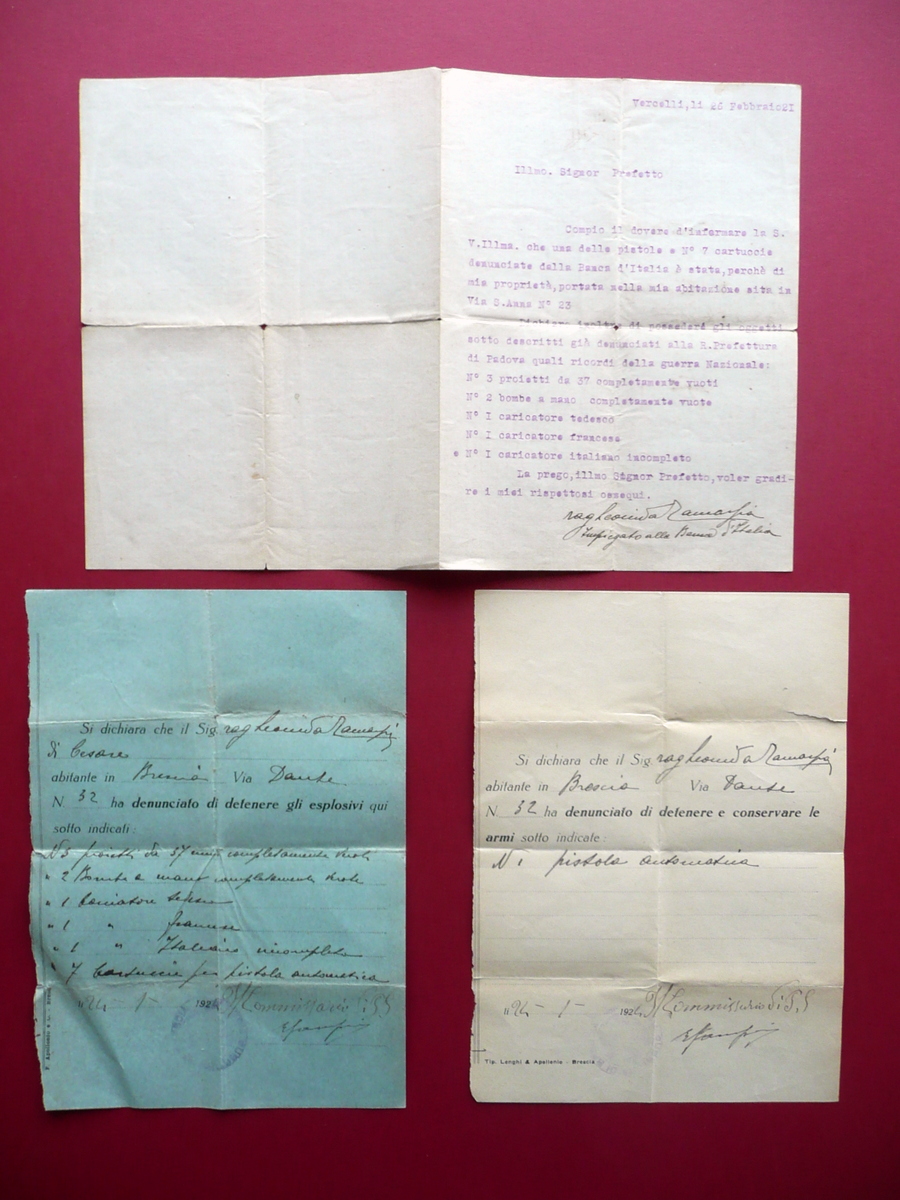 Vercelli,li 26 Febbraio21
Illmo. Signor Prefetto
Compio il dovere d'informare la S.
V.Illma. che una delle pistole e N° 7 cartuccie
denunciate dalla Banca d'Italia è stata,perchè di
mia proprietà,portata nella mia abitazione sita in
Via S.Anna N° 23
Dichiaro inoltre di possedere gli oggetti
sotto descritti già denunciati alla R.Prefettura
di Padova quali ricordi della guerra Nazionale:
N° 3 proietti da 37 completamente vuoti
N° 2 bombe a mano completamente vuote
N° I caricatore tedesco
N° I caricatore francese
e N° I caricatore italiano incompleto
La prego,illmo Signor Prefetto,voler gradi-
re i miei rispettosi ossequi.
rag Leonida
Impiegato alla Banca d'Italia
Si dichiara che il Sig. rag Leonida
di Cesare
abitante in Brescia Via Dante
N 32 ha denunciato di detenere gli esplosivi qui
sotto indicati:
N 3 proietti da 37 mm completamente vuoti
" 2 Bombe a mano completamente vuote
" 1 Caricatore tedesco
" 1 " francese
" 1 " Italiano incompleto
" 7 Cartuccie per pistola automatica
24 - 1 - 192 Il Commissario di P.S
Si dichiara che il Sig. rag Leonida
abitante in Brescia Via Dante
N 32 ha denunciato di detenere e conservare le
armi sotto indicate:
N 1 pistola automatica
24 - 1 - 192 Il Commissario di P.S
Tip. Longhi & Apollonio - Brescia